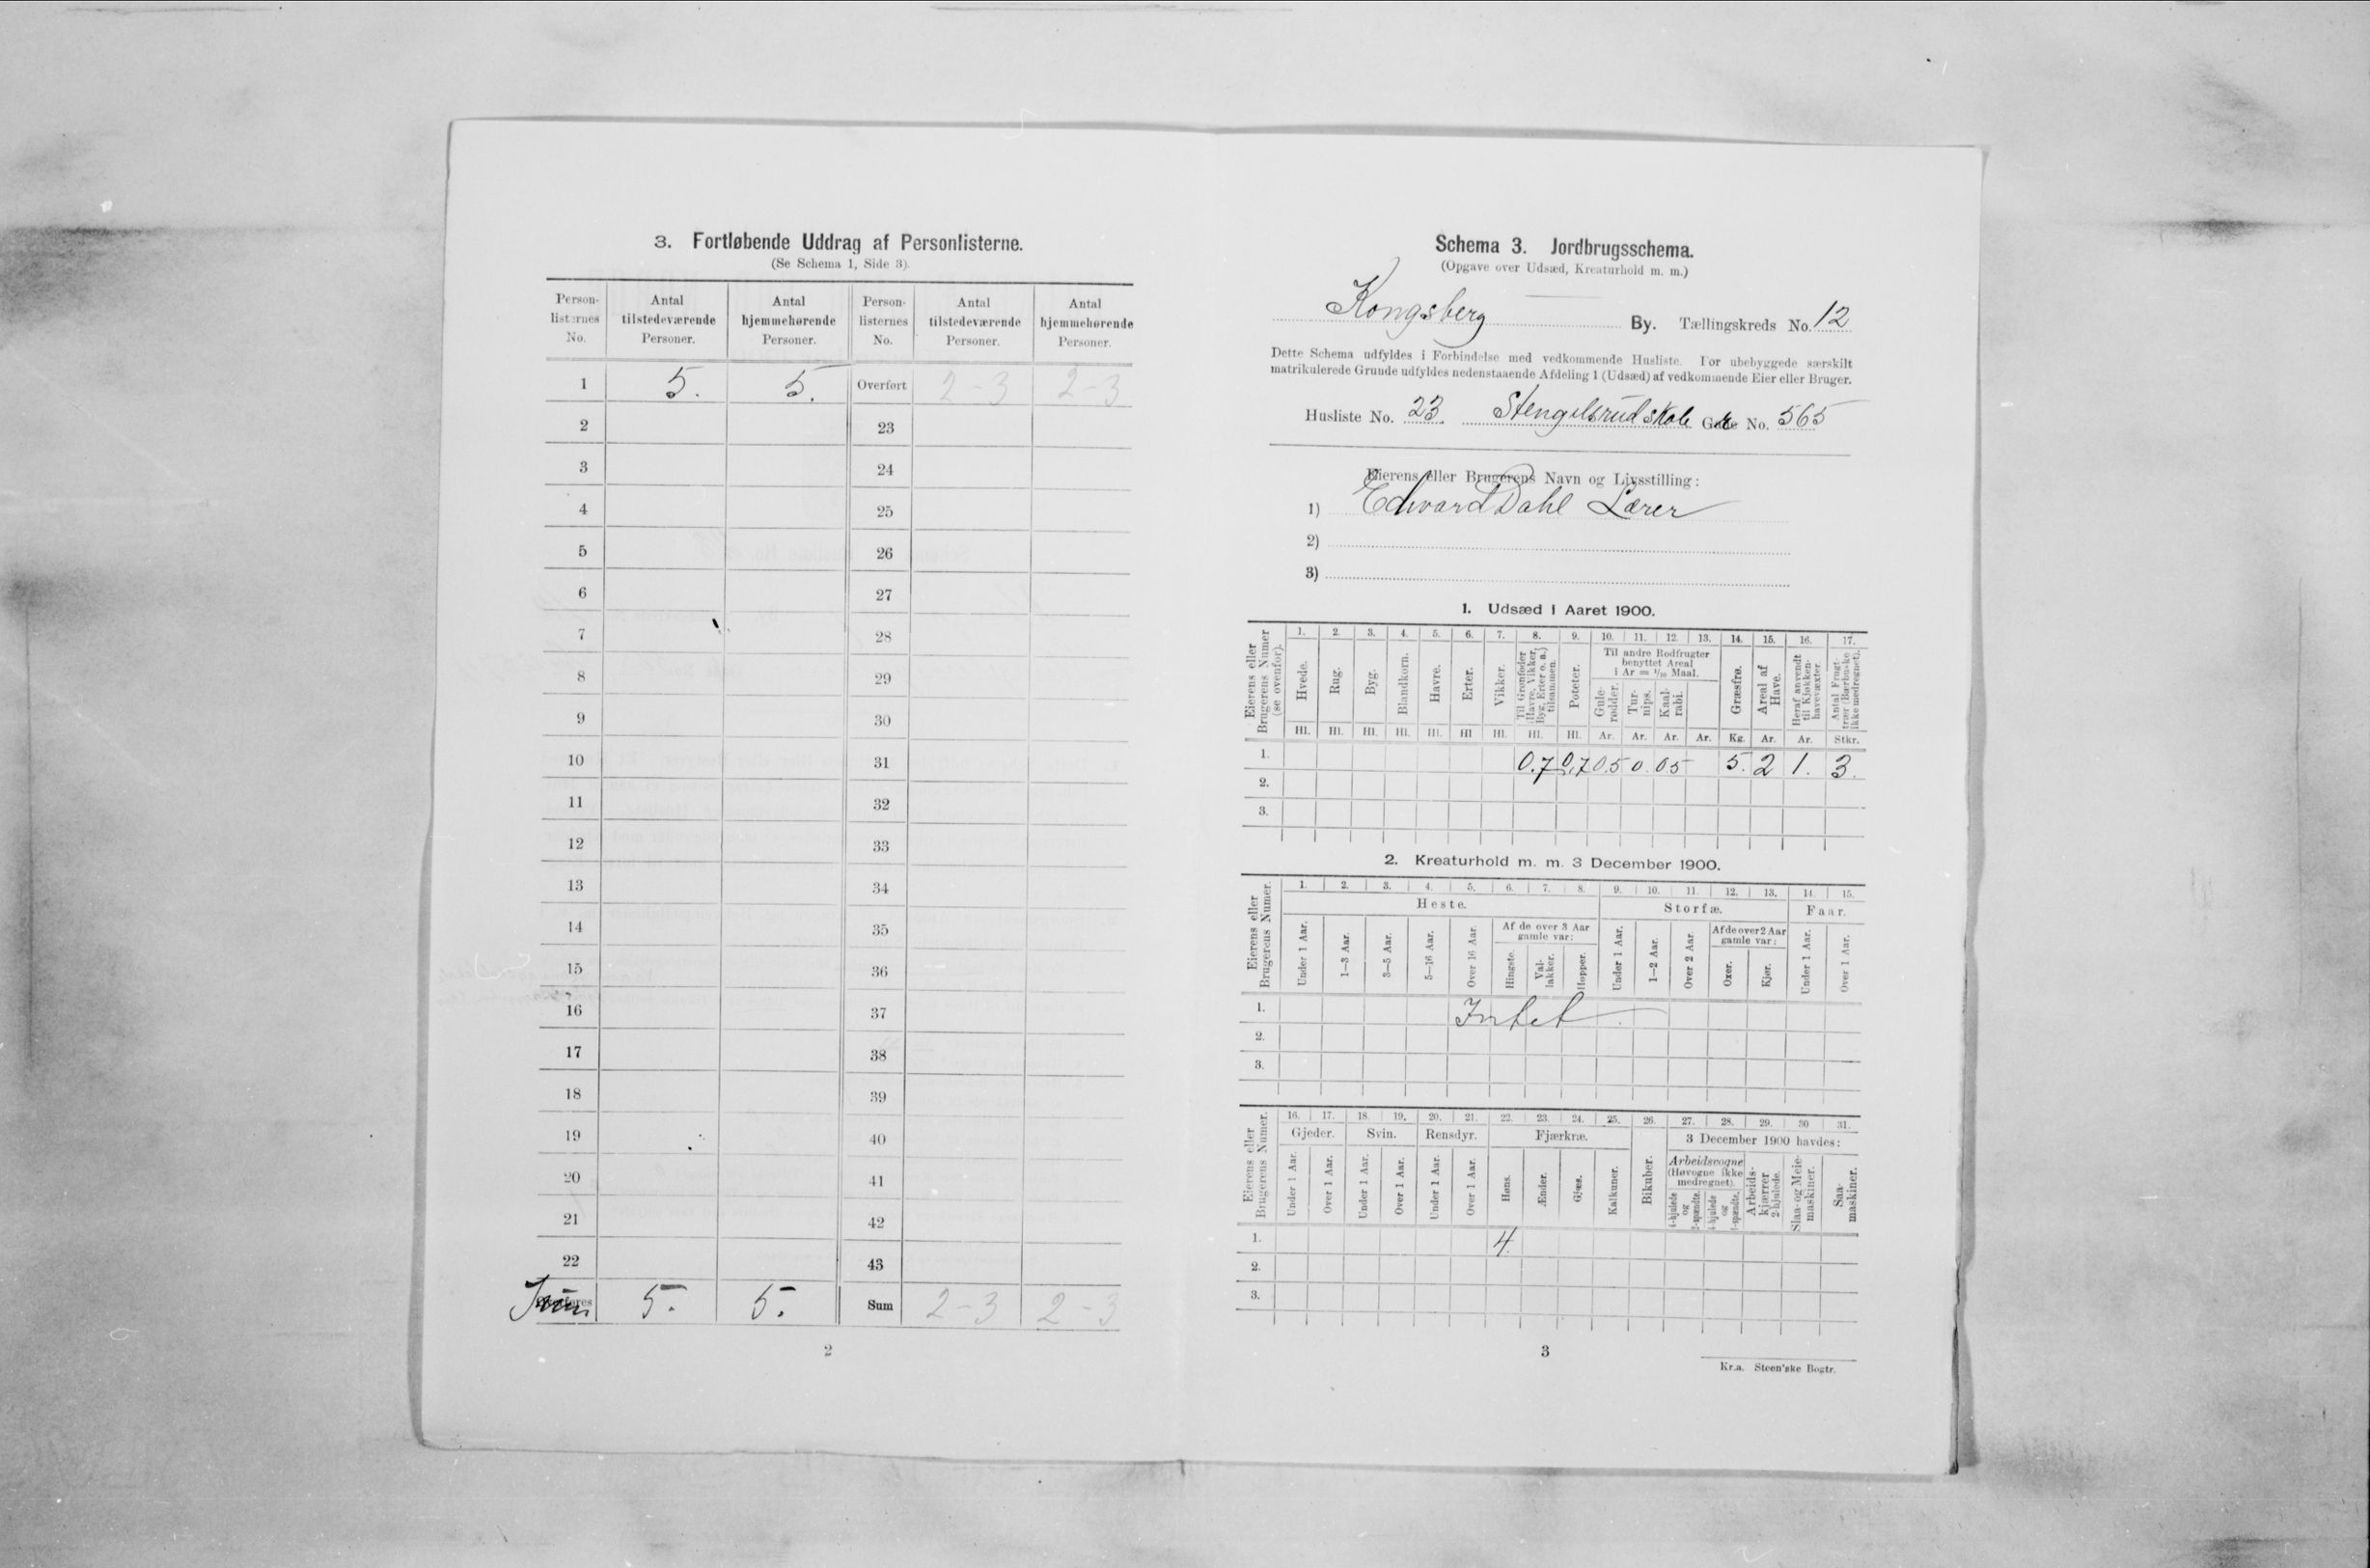 3. Fortløbende Uddrag af Personlisterne.
(Se Schema 1, Side 3).
Person-listernes No. Antal tilstedeværende Personer. Antal hjemmehørende Personer. Person-listernes No. Antal tilstedeværende Personer. Antal hjemmehørende Personer.
1 5. 5. Overført 2-3 2-3
2 23
3 24
4 25
5 26
6 27
7 28
8 29
9 30
10 31
11 32
12 33
13 34
14 35
15 36
16 37
17 38
18 39
19 40
20 41
21 42
22 43
5. 5. Sum 2-3 2-3
2
Schema 3. Jordbrugsschema.
(Opgave over Udsæd, Kreaturhold m. m.)
Kongsberg By. Tællingskreds No. 12
Dette Schema udfyldes i Forbindelse med vedkommende Husliste. For ubebyggede særskilt
matrikulerede Grunde udfyldes nedenstaaende Afdeling 1 (Udsæd) af vedkommende Eier eller Bruger.
Husliste No. 23. Stengelsrud skole Gade No. 565
Eierens eller Brugerens Navn og Livsstilling:
1) Edvard Dahl Lærer
2)
3)
1. Udsæd i Aaret 1900.
Eierens eller Brugerens Numer (se ovenfor).
1. 2. 3. 4. 5. 6. 7. 8. 9. 10. 11. 12. 13. 14. 15. 16. 17.
Hvede. Rug. Byg. Blandkorn. Havre. Erter. Vikker. Til Grønfoder (Havre, Vikker, Byg, Erter o. a.) tilsammen. Poteter. Til andre Rodfrugter benyttet Areal i Ar = 1/10 Maal. Gule-rødder. Tur-nips. Kaal-rabi. Græsfrø. Areal af Have. Heraf anvendt til Kjøkken-havevæxter. Antal Frugt-trær (Bærbuske ikke medregnet).
Hl. Hl. Hl. Hl. Hl. Hl Hl. Hl. Hl. Ar. Ar. Ar. Ar. Kg. Ar. Ar. Stkr.
1. 0.7 0,7 0.5 0 0.5 5. 2 1. 3.
2.
3.
2. Kreaturhold m. m. 3 December 1900.
Eierens eller Brugerens Numer.
1. 2. 3. 4. 5. 6. 7. 8. 9. 10. 11. 12. 13. 14. 15.
Heste. Storfæ. Faar.
Under 1 Aar. 1-3 Aar. 3-5 Aar. 5-16 Aar. Over 16 Aar. Af de over 3 Aar gamle var: Hingste. Val-lakker. Hopper. Under 1 Aar. 1-2 Aar. Over 2 Aar. Af de over 2 Aar gamle var: Oxer. Kjør. Under 1 Aar. Over 1 Aar.
1. Intet
2.
3.
Eierens eller Brugerens Numer.
16. 17. 18. 19. 20. 21. 22. 23. 24. 25. 26. 27. 28. 29. 30 31.
Gjeder. Svin. Rensdyr. Fjærkræ. Bikuber. 3 December 1900 havdes:
Under 1 Aar. Over 1 Aar. Under 1 Aar. Over 1 Aar. Under 1 Aar. Over 1 Aar. Høns. Ænder. Gjæs. Kalkuner. Arbeidsvogne (Høvogne ikke medregnet). 4-hjulede og 2-spændte. 4-hjulede og 1-spændte. Arbeids-kjærrer 2-hjulede. Slaa- og Meie-maskiner. Saa-maskiner.
1. 4.
2.
3.
3
Kr.a. Steen'ske Bogtr.